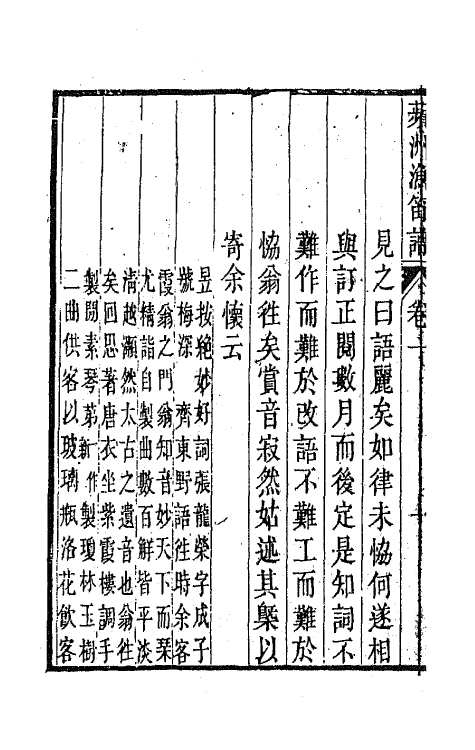 蘋洲漁笛譜 卷一
見之曰語麗矣如律未恊何遂相
與訂正閱數月而後定是知詞不
難作而難於改語不難工而難於
恊翁徃矣賞音寂然姑述其槩以
寄余懷云
昱按絶妙好詞張龍榮字成子
號梅深 齊東野語徃時余客
霞翁之門翁知音妙天下而琹
尤精詣自製曲數百觧皆平淡
清越灝然太古之遺音也翁徃
矣回思著唐衣坐紫霞樓調手
製閒素琴苐新作製瓊林玉樹
二曲供客以玻璃瓶洛花飲客